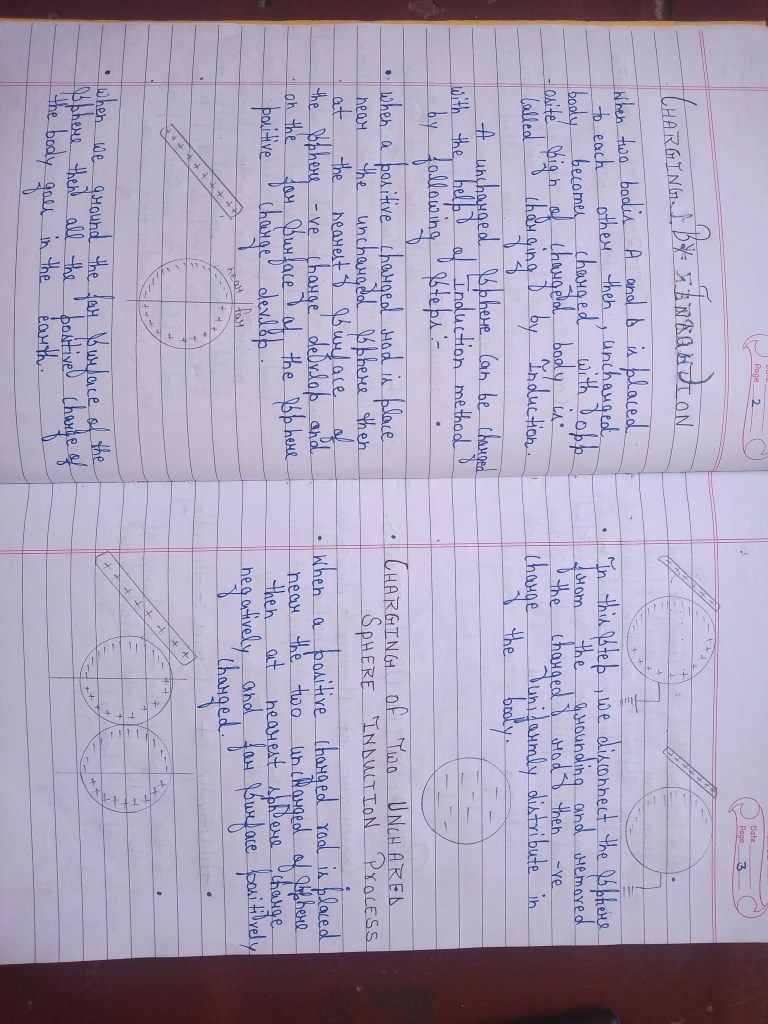 Page 2
CHARGING BY INDUCTION
When two bodies A and B is placed
to each other then, unchanged
body becomes charged with opp
-osite sign of charged body is
called charging by Induction.
A uncharged sphere can be charged
with the help of Induction method
by following steps:-
• When a positive charged rod is place
near the uncharged sphere then
at the nearest surface of
the sphere -ve charge develop and
on the far surface of the sphere
positive charge devlop.
near far
• When we ground the far surface of the
sphere then all the positive charge of
the body goes in the earth.
Date
Page 3
• In this step, we disconnect the sphere
from the grounding and removed
the charged rod then -ve
charge uniformly distribute in
the body.
• CHARGING OF TWO UNCHARED
SPHERE INDUCTION PROCESS
• When a positive charged rod is placed
near the two uncharged of sphere
then at nearest sphere charge
negatively and far surface positively
charged.